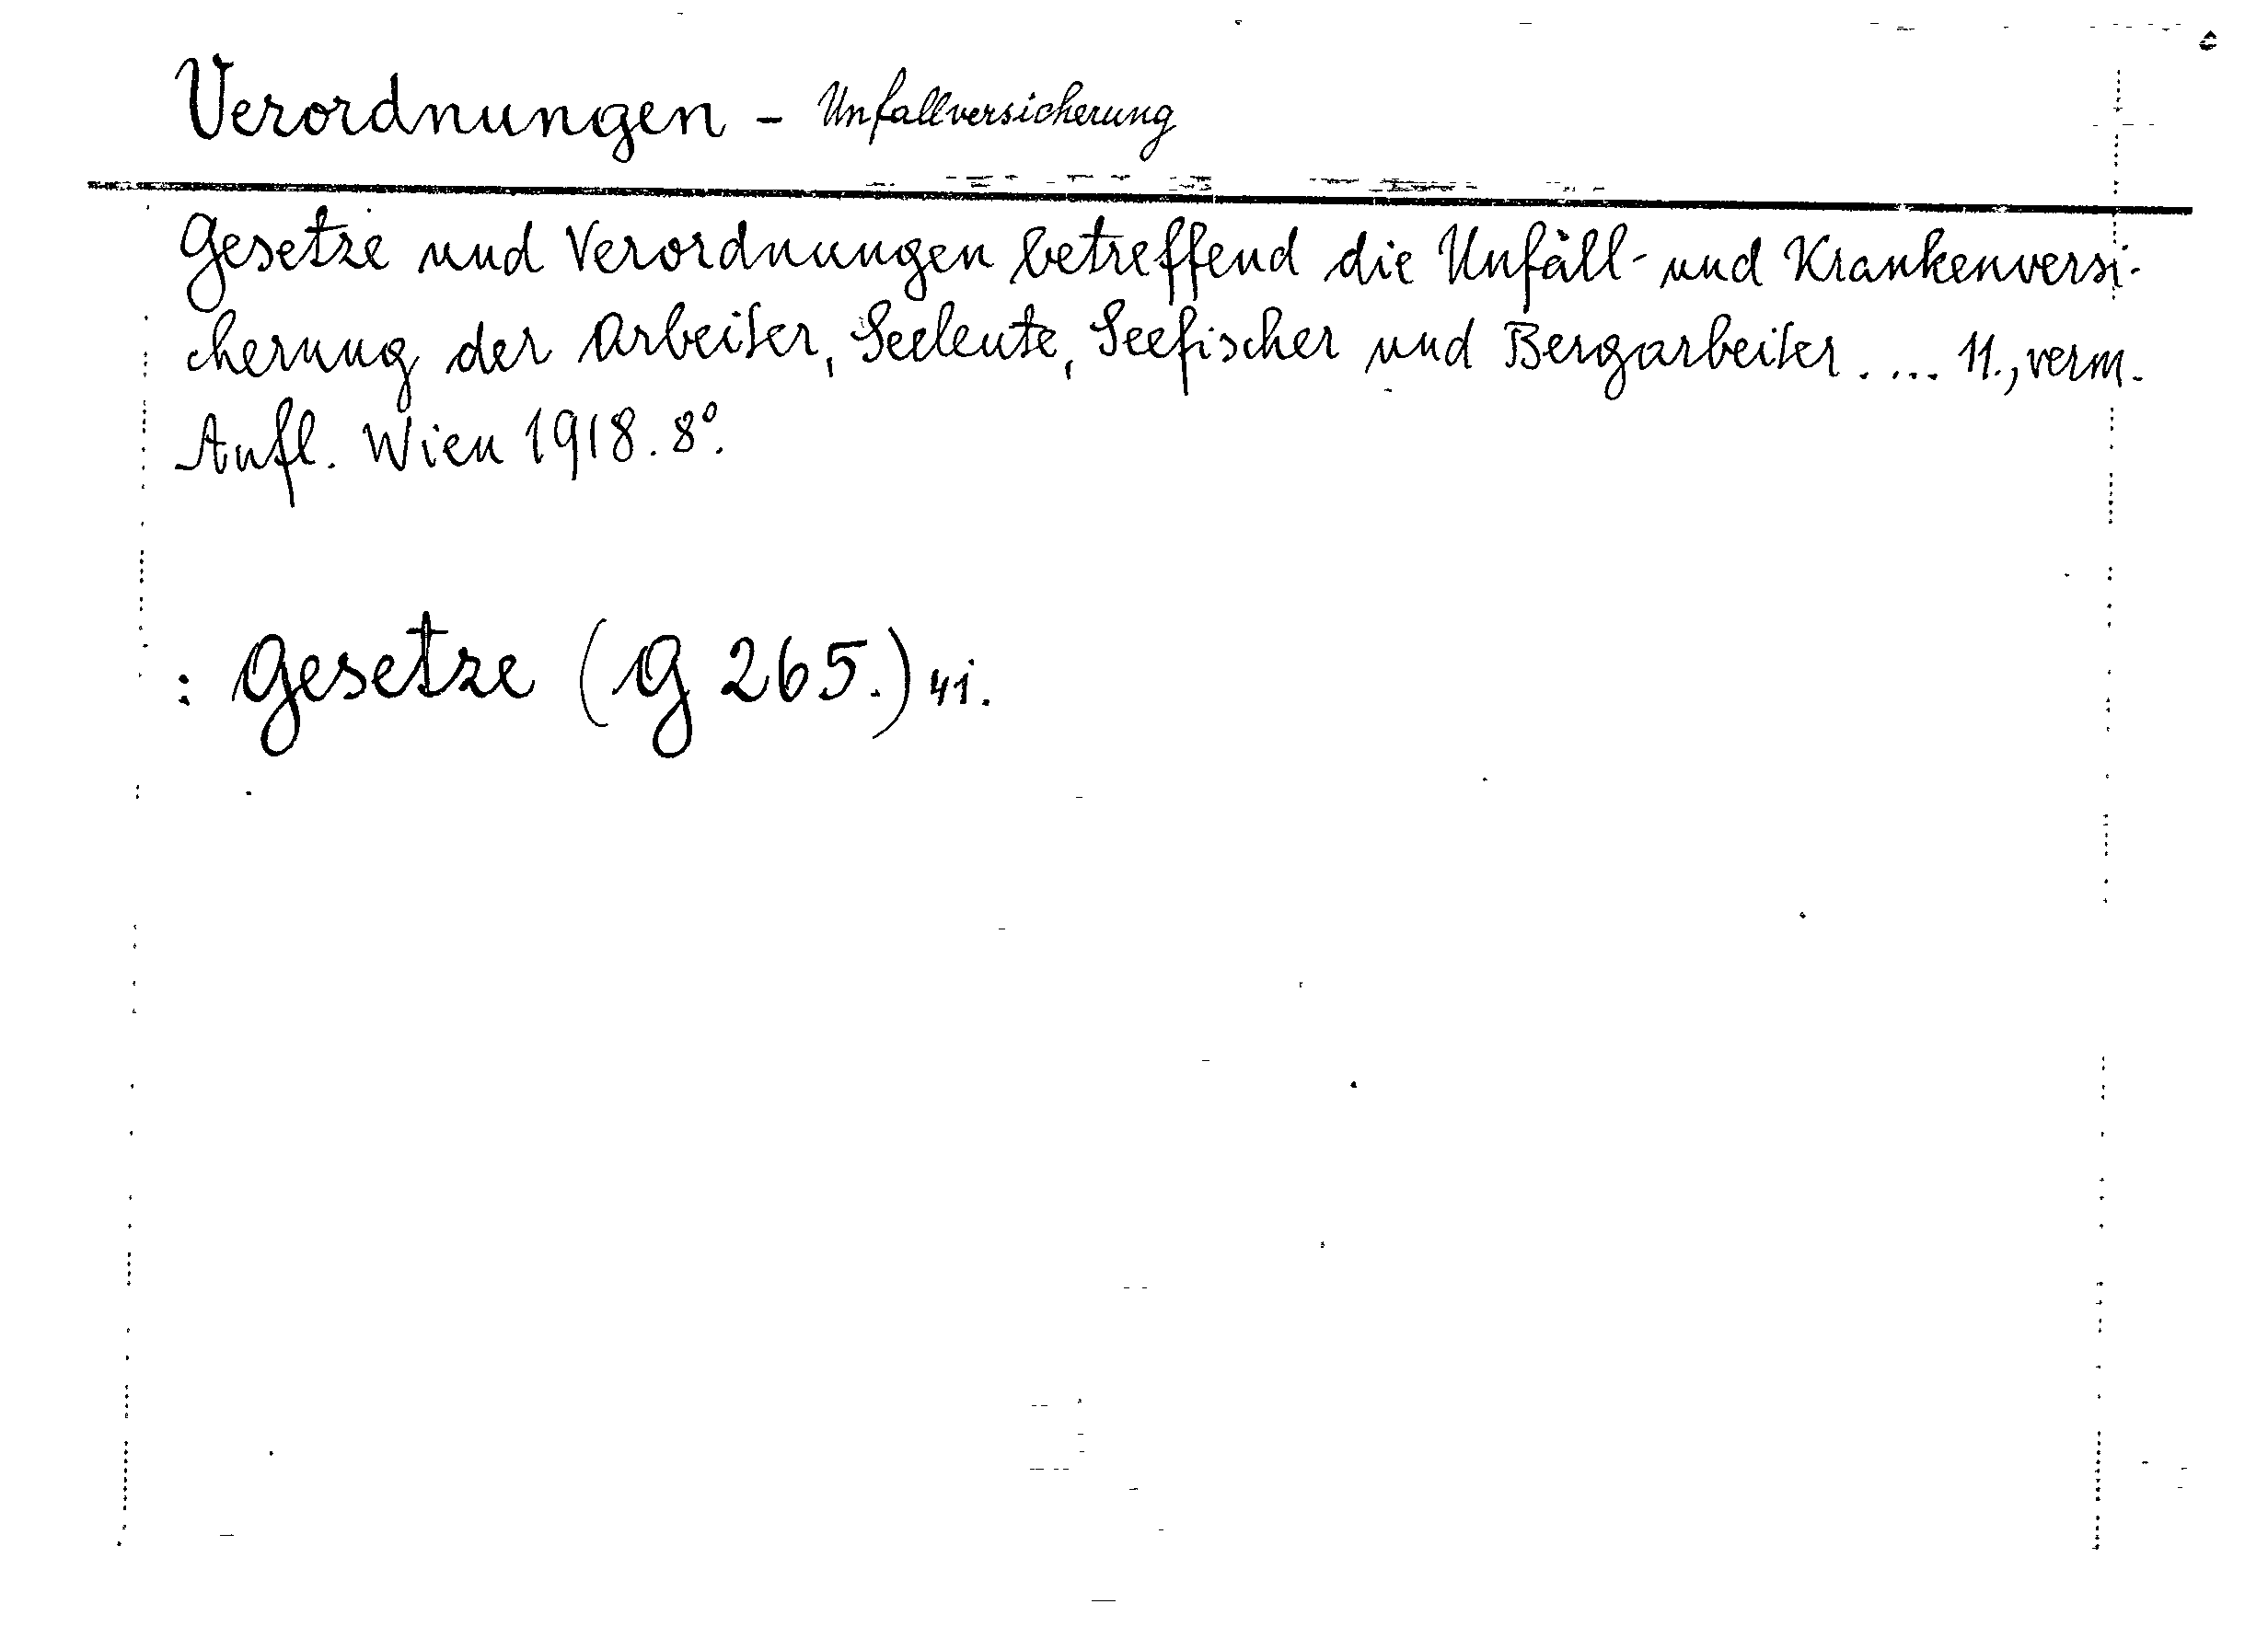 Verordnungen - Unfallversicherung
Gesetze und Verordnungen betreffend die Unfall- und Krankenversi-
cherung der Arbeiter, Seeleute, Seefischer und Bergarbeiter. ... 11., verm.
Aufl. Wien 1918. 8°.
: Gesetze (G 265.) 41.